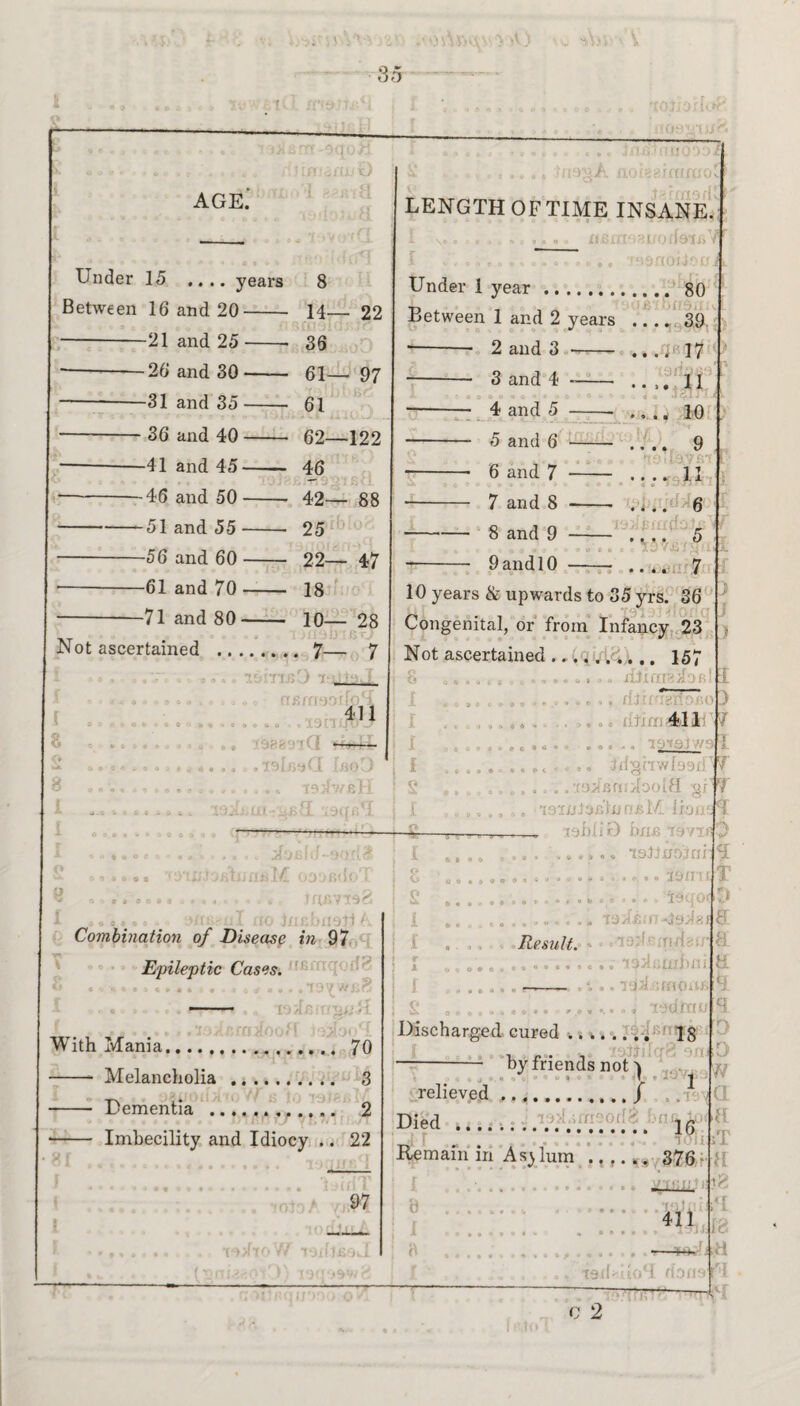 35
AGE.
Under 15 .... years 8
Between 16 and 20 —— 14— 22
——21 and 25 —— 36
——26 and 30 —— 61— 97
——31 and 35 —— 61
——36 and 40 —— 62—122
——41 and 45 —— 46
——46 and 50 —— 42— 88
——51 and 55 —— 25
——56 and 60 —— 22— 47
——61 and 70 —— 18
——71 and 80 —— 10— 28
Not ascertained ........ 7— 7
411
Combination of Disease in 97
Epileptic Cases.
With Mania.............. 70
—— Melancholia .......... 3
—— Dementia ............ 2
—— Imbecility and Idiocy .. 22
97
LENGTH OF TIME INSANE.
Under 1 year ............ 80
Between 1 and 2 years .... 39
—— 2 and 3 —— .... 17
—— 3 and 4 —— .... 11
—— 4 and 5 —— .... 10
—— 5 and 6 —— .... 9
—— 6 and 7 —— .... 11
—— 7 and 8 —— .... 6
—— 8 and 9 —— .... 5
—— 9 and 10 —— .... 7
10 years & upwards to 35 yrs. 36
Congenital, or from Infancy 23
Not ascertained ......... 157
411
Result.
Discharged cured ........ 18
—— by friends not relieved .......... } 1
Died .................. 16
Remain in Asylum ...... 376
411
C 2